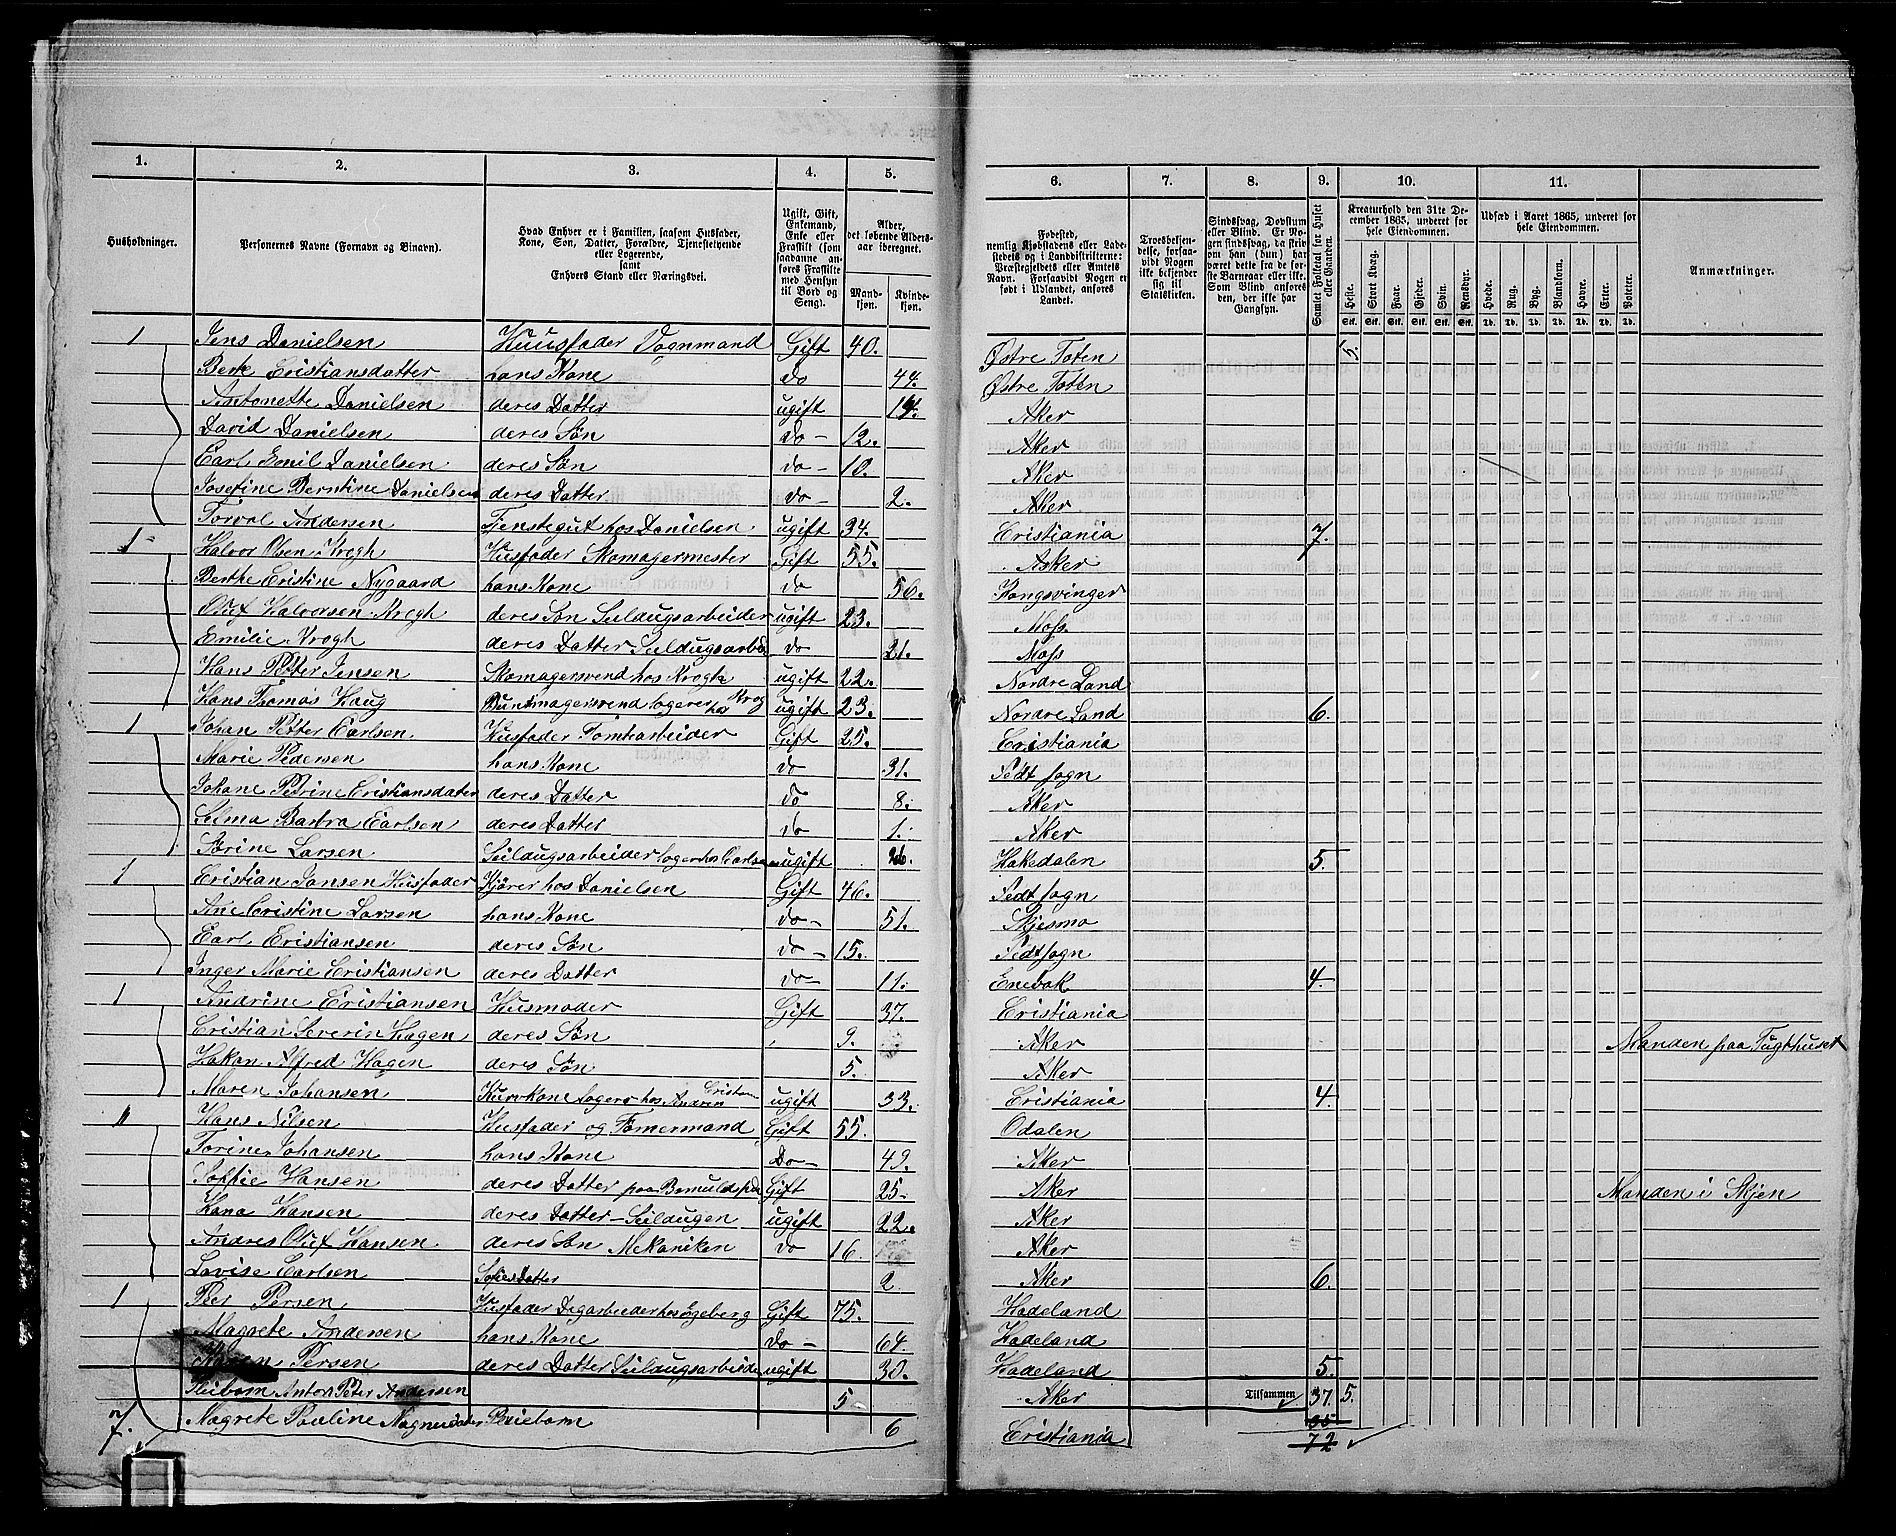 1. 2. 3. 4. 5. 6. 7. 8. 9. 10. 11.
Husholdninger.
Personernes Navne (Fornavn og Binavn).
Hvad Enhver er i Familien, saasom Husfader, Kone, Søn, Datter, Forældre, Tjenestetyende eller Logerende, samt Enhvers Stand eller Næringsvei.
Ugift, Gift, Enkemand, Enke eller Fraskilt (som saadanne anføres Fraskilte med Hensyn til Bord og Seng).
Alder, det løbende Aldersaar iberegnet.
Mandkjøn. Kvindekjøn.
Fødested, nemlig Kjøbstadens eller Ladestedets og i Landdistrikterne: Præstegjeldets eller Amtets Navn. Forsaavidt Nogen er født i Udlandet, anføres Landet.
Troesbekjendelse, forsaavidt Nogen ikke bekjender sig til Statskirken.
Sindssvag, Døvstum eller Blind. Er Nogen sindssvag, da skriv om han (hun) har været dette fra de første Barneaar eller ikke. Som Blind anføres den, der ikke har Gangsyn.
Samlet Folketal for Huset eller Gaarden.
Kreaturhold den 31te December 1865, underet for hele Eiendommen.
Heste. Stort Kvæg. Faar. Gjeder. Svin. Rensdyr.
Stk. Stk. Stk. Stk. Stk. Stk.
Udsæd i Aaret 1865, underet for hele Eiendommen.
Hvede. Rug. Byg. Blandkorn. Havre. Erter. Poteter.
Td. Td. Td. Td. Td. Td. Td.
Anmærkninger.
1 Jens Danielsen Huusfader Vognmand Gift 40. Østre Toten 5.
Berte Cristiansdatter hans Kone do 44. Østre Toten
Antonette Danielsen deres Datter ugift Aker
David Danielsen deres Søn do- 12. Aker
Carl Emil Danielsen deres Søn do- 10. Aker
Josefine Berntine Danielsen deres Datter do- 2. Aker
Torval Andersen Tienstegut hos Danielsen ugift 34. Cristiania 7.
1 Halvor Olsen Krogh Husfader Skomagermester Gift 55. Asker
Berthe Cristine Nygaard hans Kone do 56. Kongsvinger
Oluf Halvorsen Krogh deres Søn Seildugsarbeider ugift 23. Moss
Emilie Krogh deres Datter Seildugsarbei do 21. Moss
Hans Petter Jensen Skomagersvend hos Krogh ugift 22. Nordre Land
Hans Thomas Haug Buntmagersvend logerer hos Krog ugift 23. Nordre Land 6.
1 Johan Petter Carlsen Husfader Tomtarbeider Gift 25. Cristiania
Marie Pedersen hans Kone do 31. Fedt sogn
Johane Petrine Cristiansdater deres Datter do 8. Aker
Selma Barbra Carlsen deres Datter do 1. Aker
Sørine Larsen Seildugsarbeider loger hos Carlsen ugift 26. Hakedalen 5.
1 Cristian Jansen Husfader Kjører hos Danielsen Gift 46. Fedt sogn
Ane Cristine Larsen hans Kone do- 51. Skjesmo
Carl Cristiansen deres Søn do- 15. Fedt sogn
Inger Marie Cristiansen deres Datter do- 11. Enebak 4.
1 Andrine Cristiansen Husmoder Gift 37. Cristiania
Cristian Severin Hagen deres Søn 9. Aker Manden paa Tugthuset
Hakan Alfred Hagen deres Søn 5. Aker
Maren Johansen Kurvkone logerer hos Andren Cristian ugift 33. Cristiania 4.
Hans Nilsen Husfader og Tømermand Gift 55. Odalen
Torine Johansen hans Kone Do- 49. Aker
Soffie Hansen deres Datter paa Gift 25- Aker Manden i Skjen
Hana Hansen deres Datter Seildugen ugift 22. Aker
Andres Oluf Hansen deres Søn Mekaniken do 16 Aker
Lovise Carlsen Sofies Datter 2. Aker 6.
1 Per Persen Husfader Digarbeider hos Gift 75. Hadeland
Magrete Andersen hans Kone do- 64. Hadeland
Maren Persen deres Datter Seildugsarbeide ugift 30. Hadeland 5.
Pleibarn Anton Peter Andersen 5 Aker Tilsammen 37. 5.
7. Magrete Pauline Magnusdater Pleiebarn 6 Cristiania
35
72